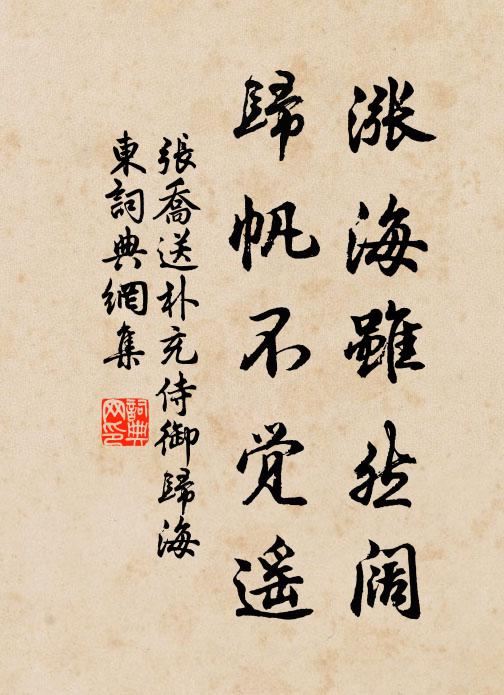 涨海雖然阔
歸帆不觉遥
張喬送朴充侍御歸海
東詞典網集
詞典
网印